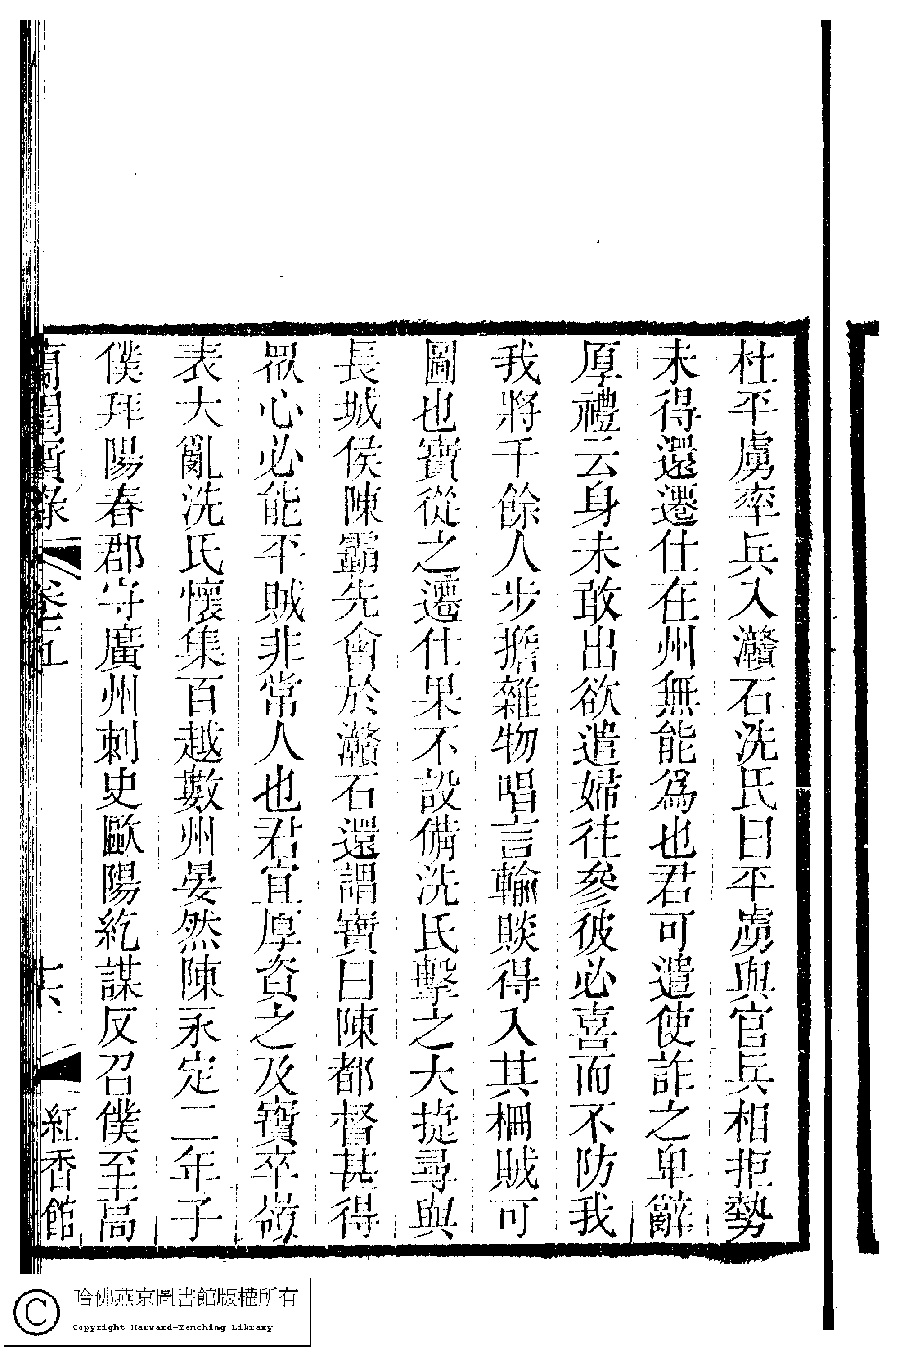 杜平虜率兵入灨石洗氏曰平虜與官兵相拒勢
未得還遷仕在州無能爲也君可遣使詐之卑辭
厚禮云身未敢出欲遣婦往參彼必喜而不防我
我將千餘人步擔雜物唱言輸賧得入其柵賊可
圖也寶從之遷仕果不設備洗氏擊之大捷尋與
長城侯陳霸先會於灨石還謂寶曰陳都督甚得
眾心必能平賊非常人也君宜厚資之及寶卒嶺
表大亂洗氏懷集百越數州晏然陳永定二年子
僕拜陽春郡守廣州刺史歐陽紇謀反召僕至高
蘭閨寶錄 卷五 十六 紅香館
哈佛燕京圖書館版權所有
Copyright Harvard-Yenching Library